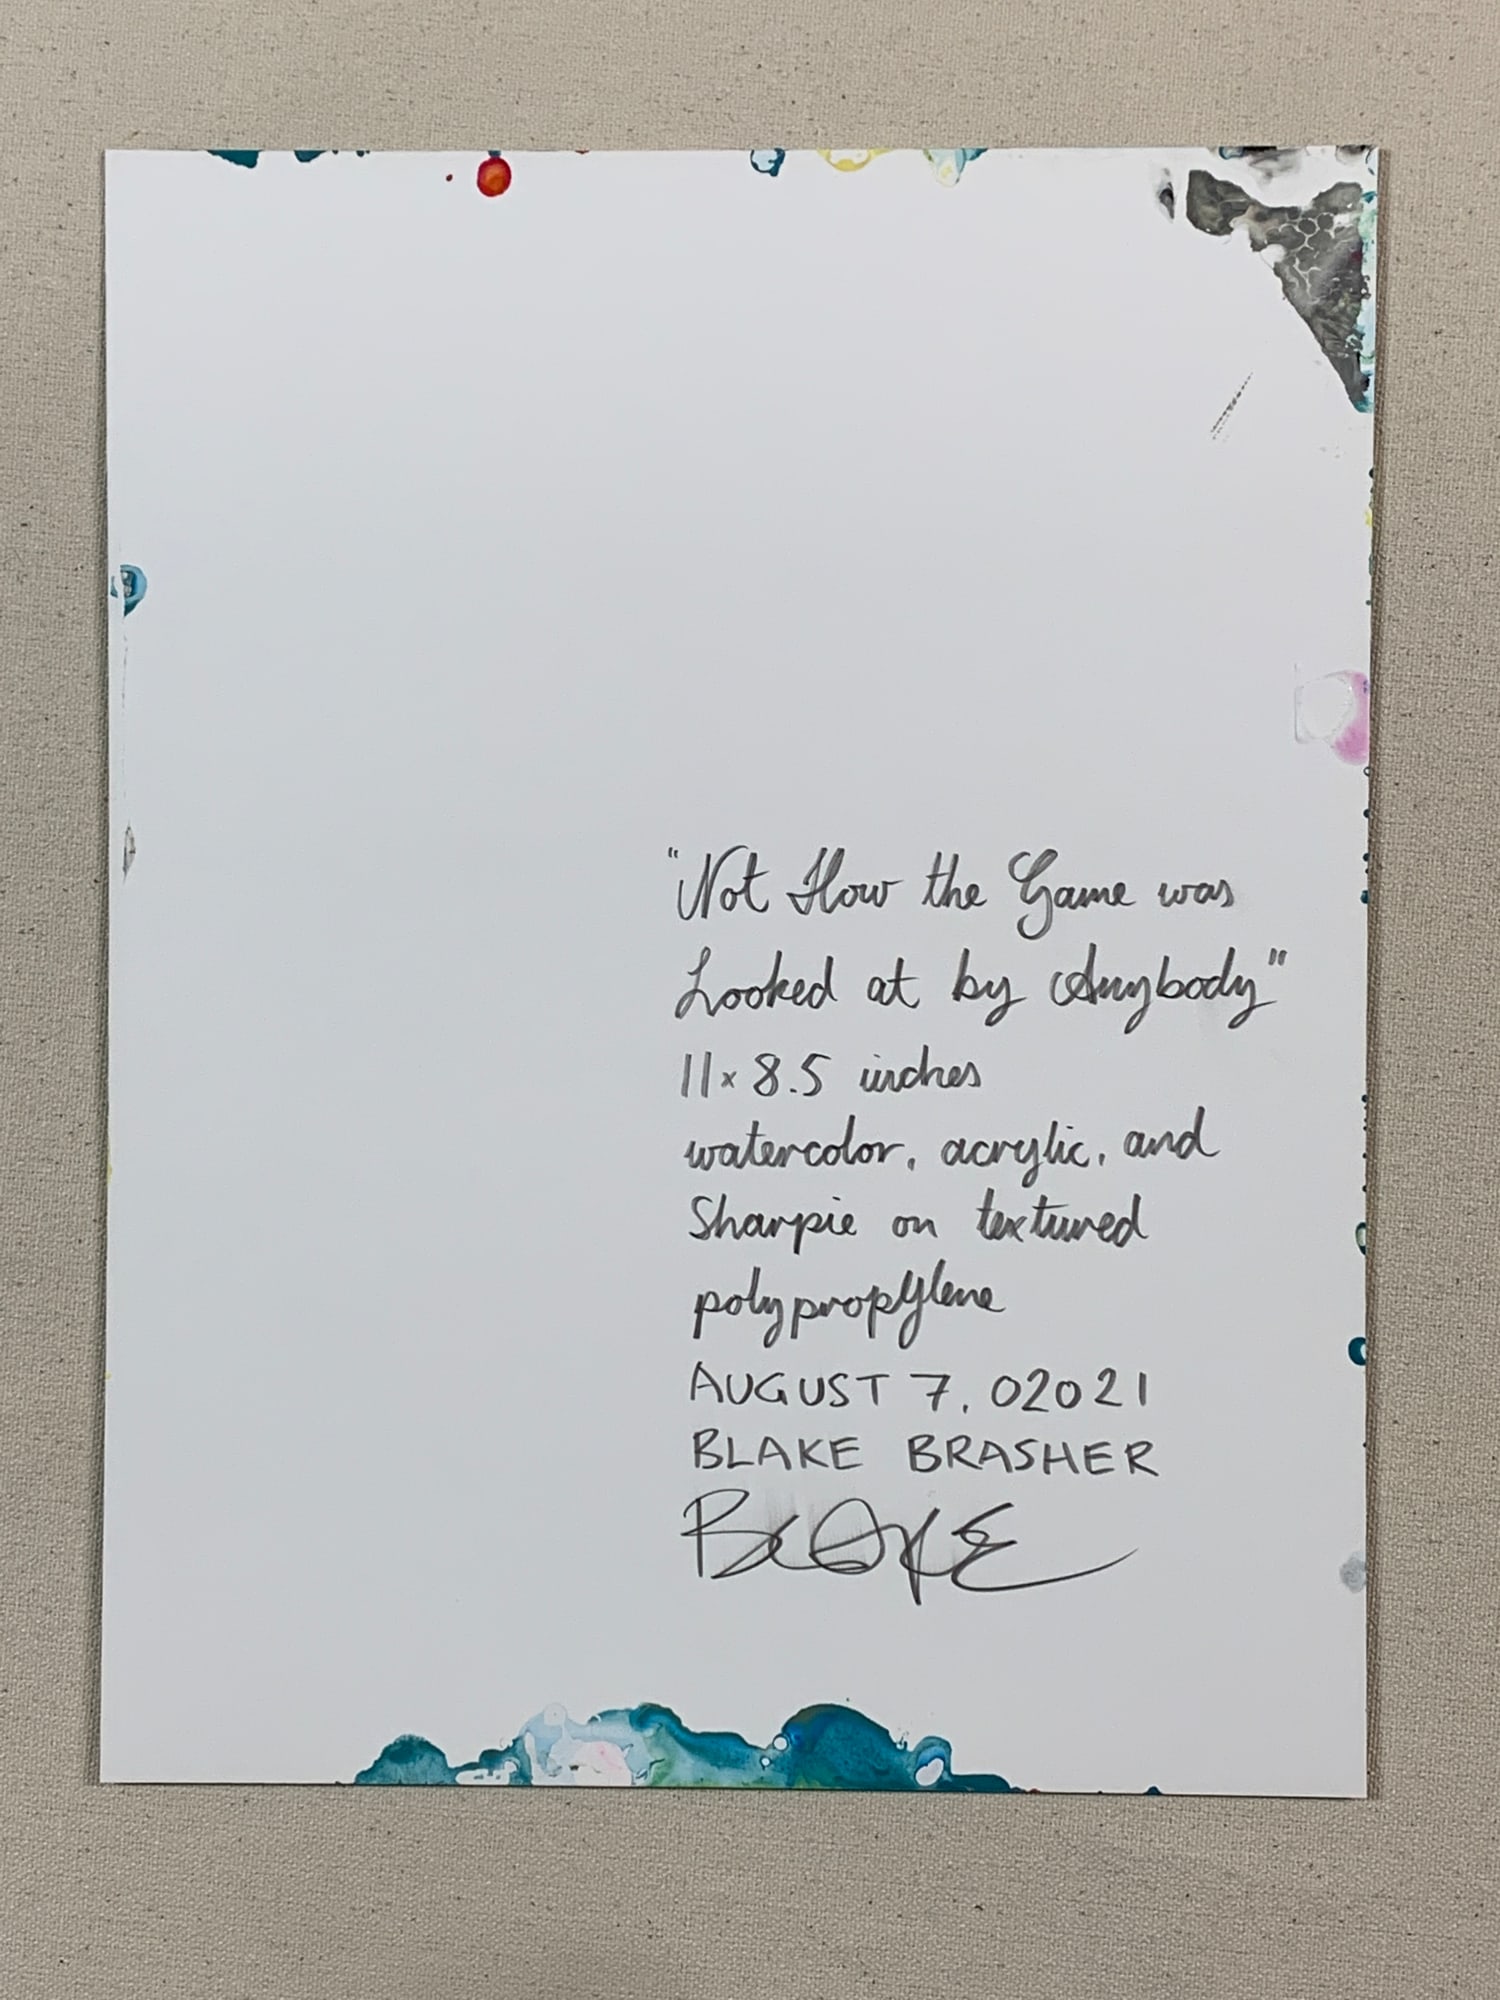 "Not How the Game was
Looked at by Anybody"
11 x 8.5 inches
watercolor, acrylic, and
Sharpie on textured
polypropylene
AUGUST 7, 02021
BLAKE BRASHER
BLAKE